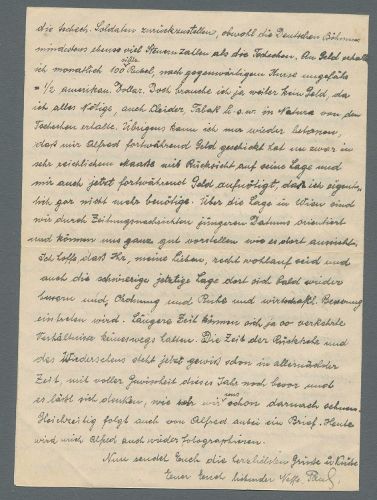 die tschech. Soldaten zurückzustellen, obwohl die Deutschen Böhmens
mindestens ebenso viel Steuern zahlen als die Tschechen. An Geld erhalte
ich monatlich 100 Rubel, nach gegenwärtigem Kurse ungefähr
= 1/2 amerikan. Dollar. Doch brauche ich ja weiter kein Geld, da
ich alles Nötige, auch Kleider, Tabak u.s.w. in Natura von den
Tschechen erhalte. Übrigens kann ich nur wieder betonen,
daß mir Alfred fortwährend Geld geschickt hat u. zwar in
sehr reichlichem Maaße mit Rücksicht auf seine Lage und
mir auch jetzt fortwährend Geld aufnötigt, das ich eigent-
lich gar nicht mehr benötige. Über die Lage in Wien sind
wir durch Zeitungsnachrichten jüngeren Datums orientiert
und können uns ganz gut vorstellen wie es dort aussieht.
Ich hoffe, daß Ihr, meine Lieben, recht wohlauf seid und
auch die schwierige jetzige Lage dort sich bald wieder
bessern und, Ordnung und Ruhe und wirtschaftl. Besserung
eintreten wird. Längere Zeit können sich ja so verkehrte
Verhältnisse keineswegs halten. Die Zeit der Rückkehr und
des Wiedersehens steht jetzt gewiß schon in allernächster
Zeit, mit voller Gewissheit dieses Jahr noch bevor und
es läßt sich denken, wie sehr wir uns schon darnach sehnen.
Gleichzeitig folgt auch von Alfred anbei ein Brief. Heute
wird mich Alfred auch wieder Fotographieren.
Nun sendet Euch die herzlichsten Grüße u. Küsse
Euer Euch liebender Neffe Paul.